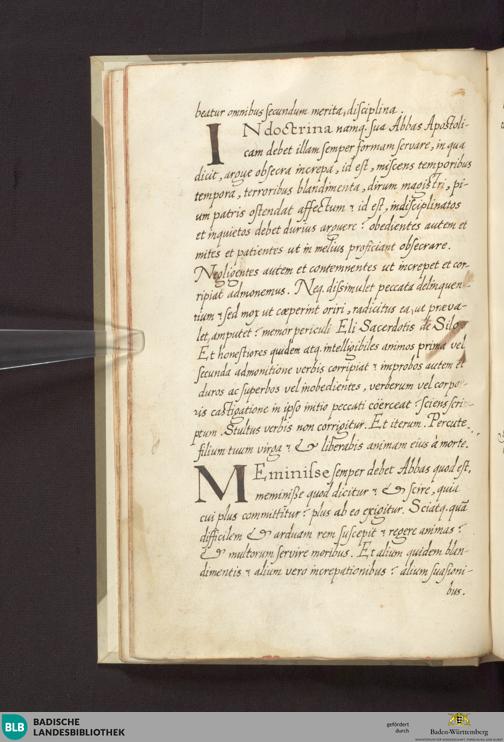 beatur omnibus secundum merita, disciplina.
IN doctrina namq. sua Abbas Apostoli-
cam debet illam semper formam servare, in qua
dicit, argue obsecra increpa, id est, miscens temporibus
tempora, terroribus blandimenta, dirum magistri, pi-
um patris ostendat affectum : id est, indisciplinatos
et inquietos debet durius arguere : obedientes autem et
mites et patientes ut in melius proficiant obsecrare.
Negligentes autem et contemnentes ut increpet et cor-
ripiat admonemus. Neq. dissimulet peccata delinquen-
tium : sed mox ut cœperint oriri, radicitus ea, ut præva-
let, amputet : memor periculi Eli Sacerdotis de Silo.
Et honestiores quidem atq. intelligibiles animos prima vel
secunda admonitione verbis corripiat : improbos autem et
duros ac superbos vel inobedientes, verberum vel corpo-
ris castigatione in ipso initio peccati cöerceat : sciens scri-
ptum. Stultus verbis non corrigitur. Et iterum. Percute
filium tuum virga : & liberabis animam eius à morte.
MEminisse semper debet Abbas quod est,
meminisse quod dicitur : & scire, quia
cui plus committitur : plus ab eo exigitur. Sciatq. quā
difficilem & arduam rem suscepit : regere animas :
& multorum servire moribus. Et alium quidem blan-
dimentis : alium vero increpationibus : alium suasioni-
bus.
BLB BADISCHE
LANDESBIBLIOTHEK
gefördert
durch
Baden-Württemberg